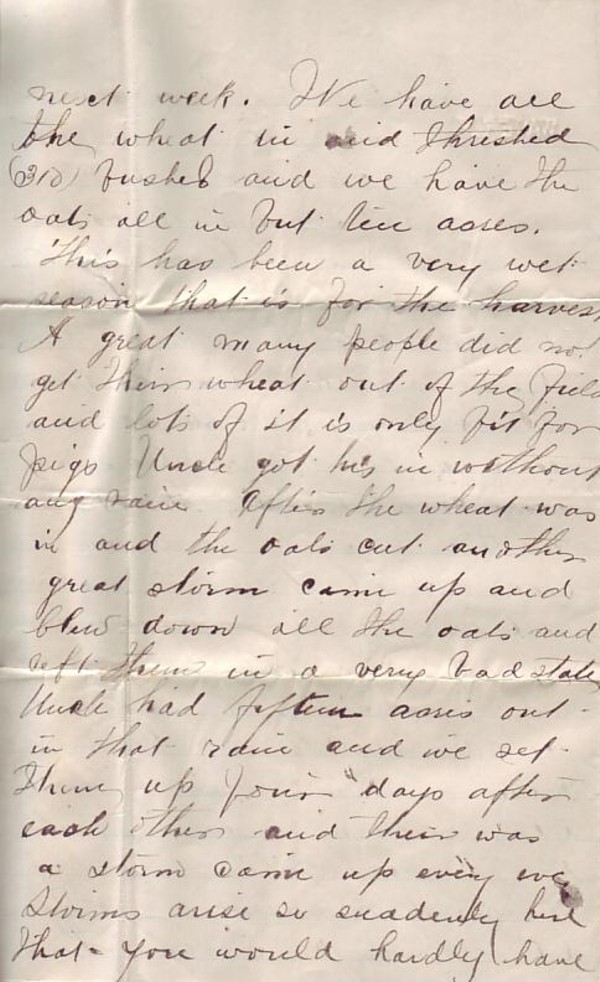 next week. We have all
the wheat in and threshed
(310) bushel and we have the
oats all in but ten acres.
This has been a very wet
season that is for the harvest
A great many people did not
get thier wheat out of the field
and lots of it is only fit for
pigs Uncle got his in without
any rain After the wheat was
in and the oats cut another
great storm came up and
blew down all the oats and
left them in a very bad state
Uncle had fifteen acres out
in that rain and we set
them up four days after
each other and their was
a storm came up every
storms arise so suddenly here
that you would hardly have